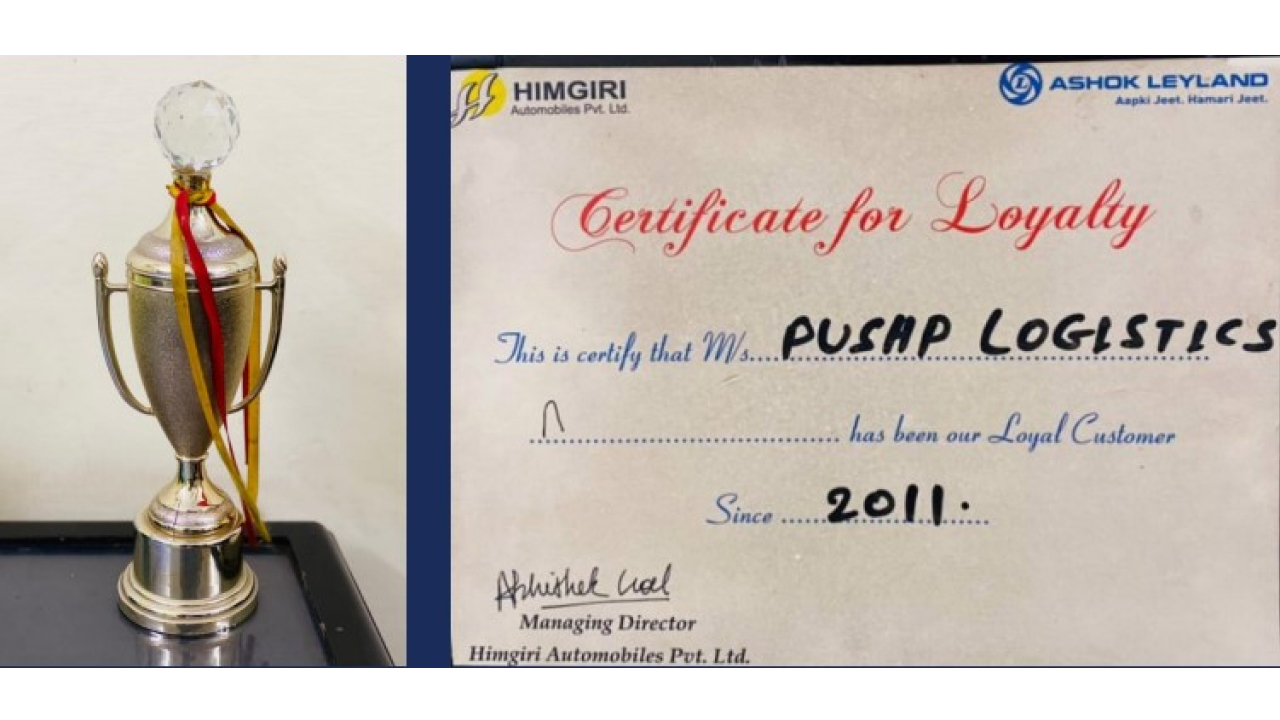 HIMGIRI
Automobiles Pvt. Ltd.
ASHOK LEYLAND
Aapki Jeet. Hamari Jeet.
Certificate for Loyalty
This is certify that M/s.... PUSHP LOGISTICS
has been our Loyal Customer
Since ...... 2011.
Abhishek Goel
Managing Director
Himgiri Automobiles Pvt. Ltd.